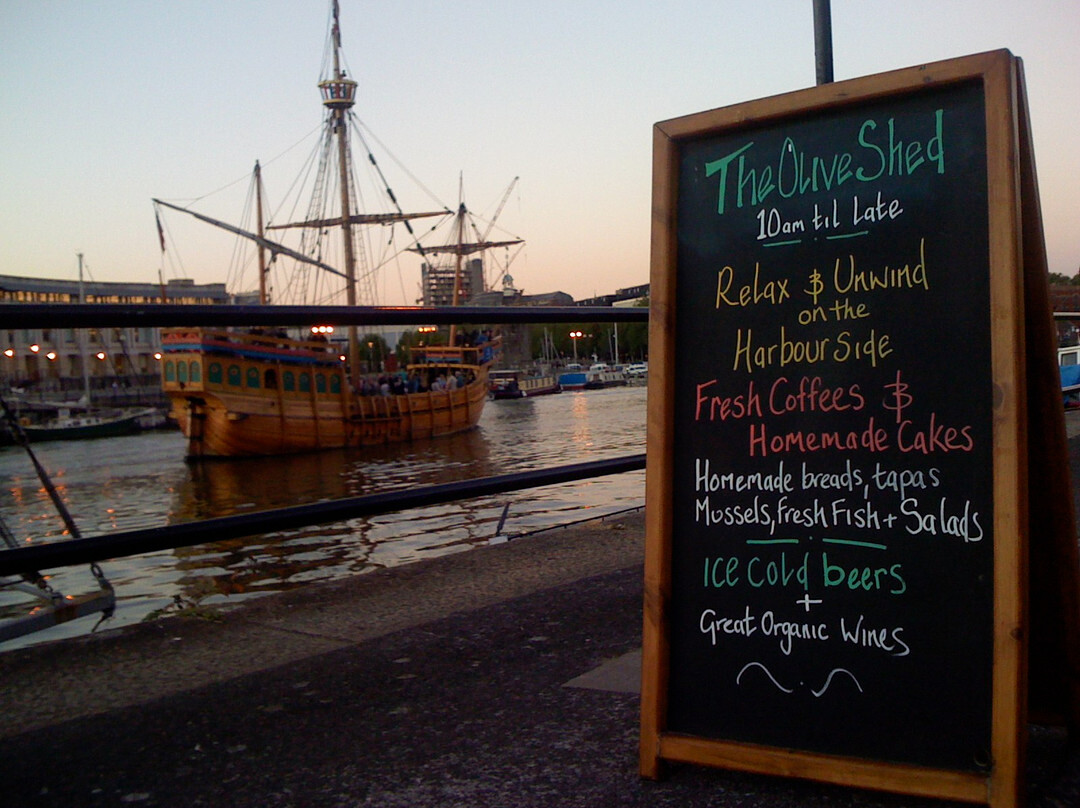 The Olive Shed
10am til Late
Relax & Unwind
on the
Harbour Side
Fresh Coffees &
Homemade Cakes
Homemade breads, tapas
Mussels, fresh Fish + Salads
Ice cold beers
+
Great Organic Wines